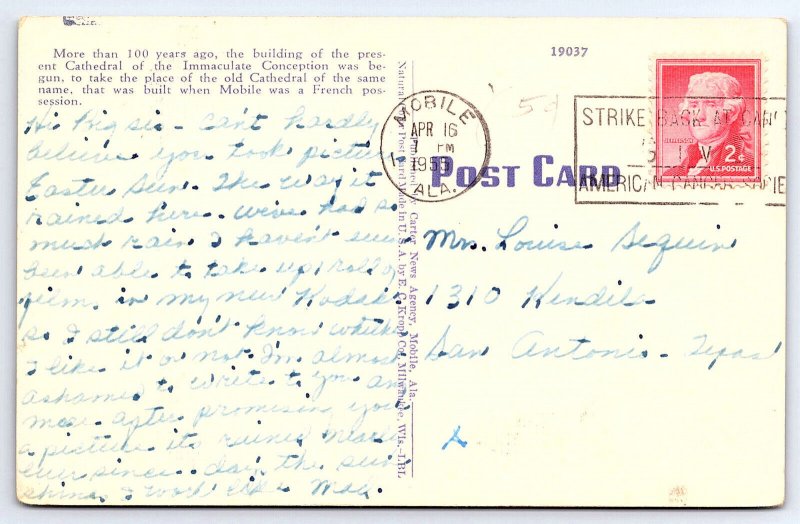 More than 100 years ago, the building of the pres-
ent Cathedral of the Immaculate Conception was be-
gun, to take the place of the old Cathedral of the same
name, that was built when Mobile was a French pos-
session.
Hi Big sis - can't hardly
believe you took picture
Easter Sun. The way it
rained here. we've had so
much rain I haven't even
been able to take up roll of
film, in my new Kodak
so I still don't know whether
I like it or not I'm almost
ashamed to write to you any
more after promising you
a picture its rained nearly
ever since. day the sun
shine I work like Mad.
Natural Color Post Card Made in U.S.A. by E. C. Kropp Co., Milwaukee, Wis.-LBL
by Carter News Agency, Mobile, Ala.
19037
POST CARD
MOBILE
APR 16
7 PM
1955
ALA.
5¢
STRIKE BACK AT CAN
GIV
AMERICAN CANCER
JEFFERSON
2¢
U.S. POSTAGE
Mrs. Louise Sequin
1310 Kendila
San Antonio - Texas